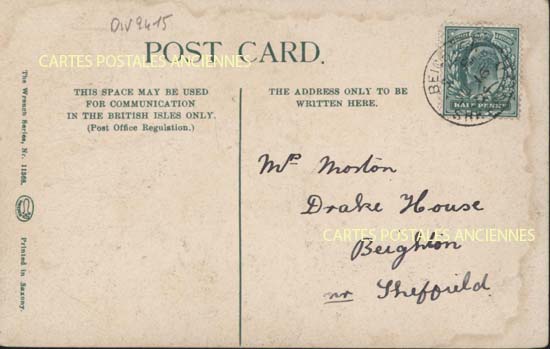 Div2415
CARTES POSTALES ANCIENNES
POST CARD.
THIS SPACE MAY BE USED
FOR COMMUNICATION
IN THE BRITISH ISLES ONLY.
(Post Office Regulation.)
THE ADDRESS ONLY TO BE
WRITTEN HERE.
HALF PENNY
The Wrench Series, Nr. 11568.
Printed in Saxony.
Mrs Morton
Drake House
CARTES POSTALES ANCIENNES
Beighton
nr Sheffield